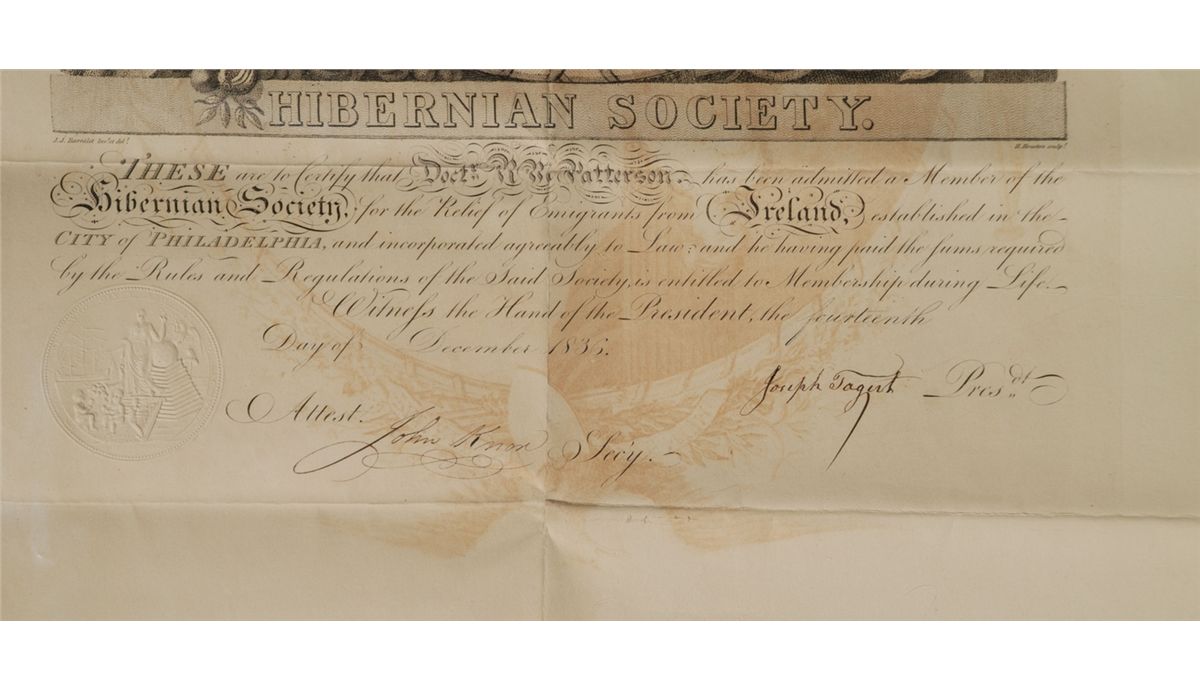 HIBERNIAN SOCIETY.
J. J. Barralet Inv.t et del.t H. Houston sculp.t
THESE are to Certify that Doct.r R M Patterson has been admitted a Member of the
Hibernian Society, for the Relief of Emigrants from Ireland, established in the
CITY of PHILADELPHIA, and incorporated agreeably to Law: and he having paid the sums required
by the Rules and Regulations of the Said Society, is entitled to Membership during Life.
Witness the Hand of the President, the fourteenth
Day of December 1836.
Joseph Tagert Pres.dt
Attest.
John Knox Secy.